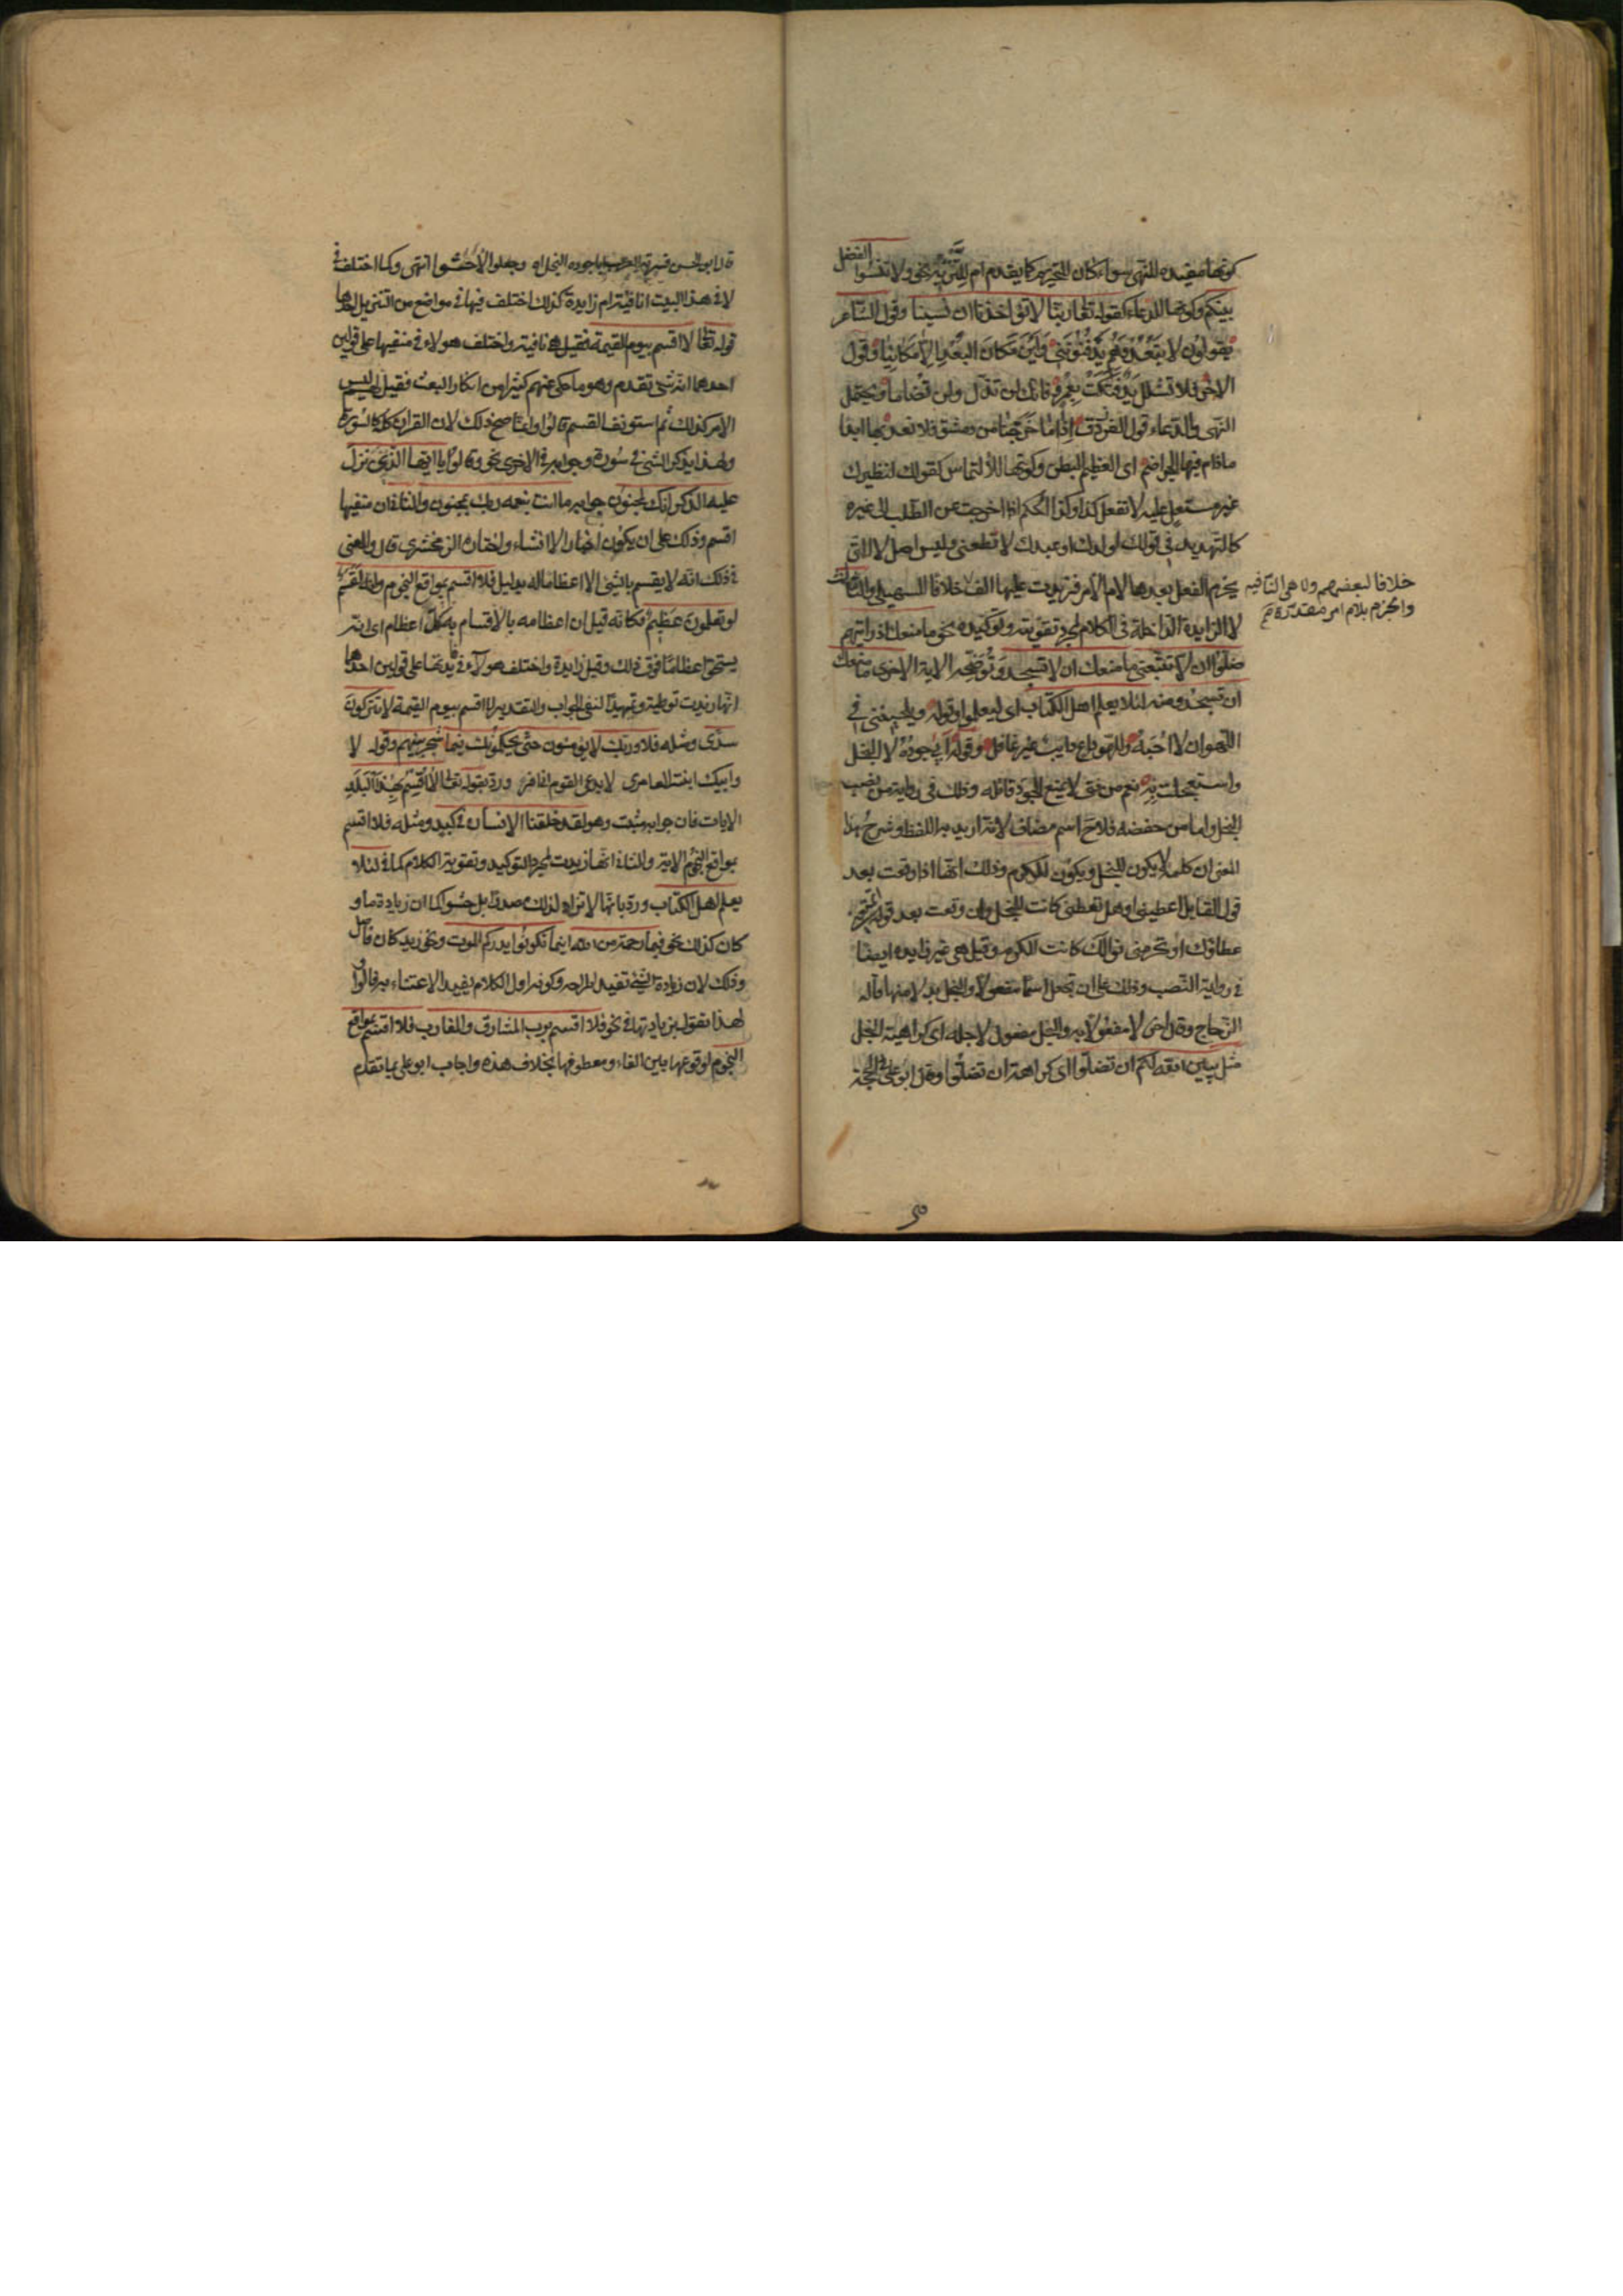 كونها مفيدة للنهى سواء كان للتحريم كما تقدم ام للتنزيه نحو ولا تنسوا الفضل
بينكم وكونها للدعاء كقوله تعالى ربنا لا تؤاخذنا ان نسينا وقول الشاعر
يقولون لا تبعد وهم يدفنوننى واين مكان البعد الا مكانيا وقول
الاخر فلا تشلل يد فتكت بعمرو فانك لن تذل ولن تضاما ويحتمل
النهى والدعاء قول الفرزدق اذا ما خرجنا من دمشق فلا نعد بها ابدا
مادام فيها الجراضم اى العظيم البطن وكونها للالتماس كقولك لنظيرك
غير مستعل عليه لا تفعل كذا وكذا الحكم اذا خرجت عن الطلب الى غيره
كالتهديد فى قولك لولدك او عبدك لا تطعنى وليس اصل لا التى
يجزم الفعل بعدها لام الامر فزيدت عليها الف خلافا للسهيلى والثالث
خلافا لبعضهم ولا هى النافيه
والجزم بلام امر مقدرة صح
لا الزايدة الداخلة فى الكلام لمجرد تقويته وتوكيده نحو ما منعك اذ رايتهم
ضلوا ان لا تتبعنى ما منعك ان لا تسجد وتوضحه الاية الاخرى ما منعك
ان تسجد ومنه لئلا يعلم اهل الكتاب اى ليعلموا وقوله ويلحيننى فى
اللهو ان لا احبه وللهو داع دايب غير غافل وقوله ابى جوده لا البخل
واستعجلت به نعم من فتى لا يمنع الجود قاتله وذلك فى رواية من نصب
البخل واما من خفضه فلاح اسم مضاف لانه اريد به اللفظ وشرح هذا
المعنى ان كلمة لا يكون للبخل ويكون للكرم وذلك انها اذا وقعت بعد
قول القايل اعطنى او هل تعطنى كانت للبخل وان وقعت بعد قوله اتمنع
عطاؤك او تحرمنى نوالك كانت للكرم وقيل هى غير زايدة ايضا
فى رواية النصب وذلك على ان تجعل اسما مفعولا والبخل بدلا منها قاله
الزجاج وقال اخر لا مفعول به والبخل مفعول لاجله اى كراهية البخل
مثل يبين الله لكم ان تضلوا اى كراهة ان تضلوا وقال ابو على فى الحجة
قال ابو الحسن فسرته العرب ابى جوده البخل اه وجعلوا لا حشوا انتهى وكما اختلف فى
لا فى هذا البيت انافية ام زايدة كذلك اختلف فيها فى مواضع من التنزيل احدها
قوله تعالى لا اقسم بيوم القيمة فقيل هى نافية واختلف هولاء فى منفيها على قولين
احدهما انه شئ تقدم وهو ما حكى عنهم كثيرا من انكار البعث فقيل لهم ليس
الامر كذلك ثم استونف القسم قالوا وانما صح ذلك لان القران كله كالسورة
ولهذا يذكر الشئ فى سورة وجوابه فى الاخرى نحو وقالوا يا ايها الذى نزل
عليه الذكر انك لمجنون جوابه ما انت بنعمة ربك بمجنون والثانى ان منفيها
اقسم وذلك على ان يكون اخبارا لا انشاء واختاره الزمخشرى قال والمعنى
فى ذلك انه لا يقسم بالشئ الا اعظاما له بدليل فلا اقسم بمواقع النجوم وانه لقسم
لو تعلمون عظيم فكانه قيل ان اعظامه بالاقسام به كلا اعظام اى انه
يستحق اعظاما فوق ذلك وقيل زايدة واختلف هولاء فى فايدتها على قولين احدهما
انها زيدت توطية وتمهيدا لنفى الجواب والتقدير لا اقسم بيوم القيمة لا يتركون
سدى ومثله فلا وربك لا يؤمنون حتى يحكموك فيما شجر بينهم وقوله لا
وابيك ابنة العامرى لا يدعى القوم انى افر ورد بقوله تعالى لا اقسم بهذا البلد
الايات فان جوابه مثبت وهو لقد خلقنا الانسان فى كبد ومثله فلا اقسم
بمواقع النجوم الاية والثانى انها زيدت لمجرد التوكيد وتقوية الكلام كما فى لئلا
يعلم اهل الكتاب ورد بانها لا تزاد لذلك صدرا بل حشوا كما ان زيادة ما و
كان كذلك نحو فبما رحمة من الله اينما تكونوا يدرككم الموت ونحو زيد كان فاضل
وذلك لان زيادة الشئ تفيد اطراحه وكونه اول الكلام يفيد الاعتناء به قالوا و
لهذا نقول بزيادتها فى نحو فلا اقسم برب المشارق والمغارب فلا اقسم بمواقع
النجوم لوقوعها بين الفاء ومعطوفها بخلاف هذه واجاب ابو على بما تقدم